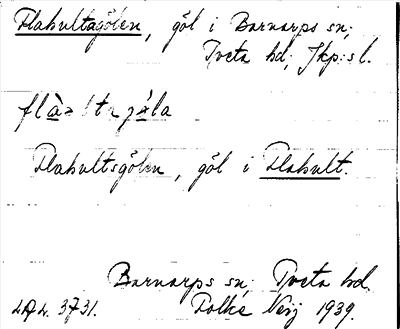 Flahultagölen, göl i Barnarps sn;
Tveta hd; Jkp:s l.
Flahultsgölen, göl i Flahult.
Barnarps sn; Tveta hd.
LAL. 3731. Folke 1939.